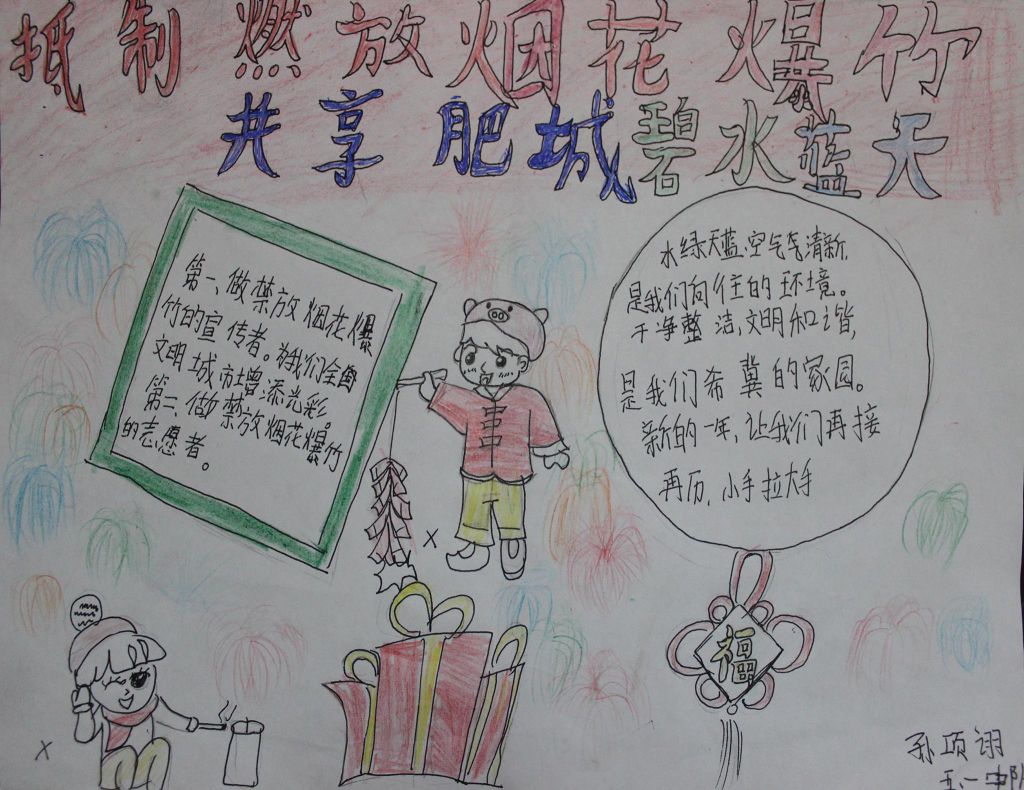 抵制燃放烟花爆竹
共享肥城碧水蓝天
第一、做禁放烟花爆
竹的宣传者。为我们全国
文明城市增添光彩。
第二、做禁放烟花爆竹
的志愿者。
水绿天蓝、空气清新,
是我们向往的环境。
干净整洁,文明和谐,
是我们希冀的家园。
新的一年,让我们再接
再历,小手拉大手
X
福
X
孙项诩
五、一中队